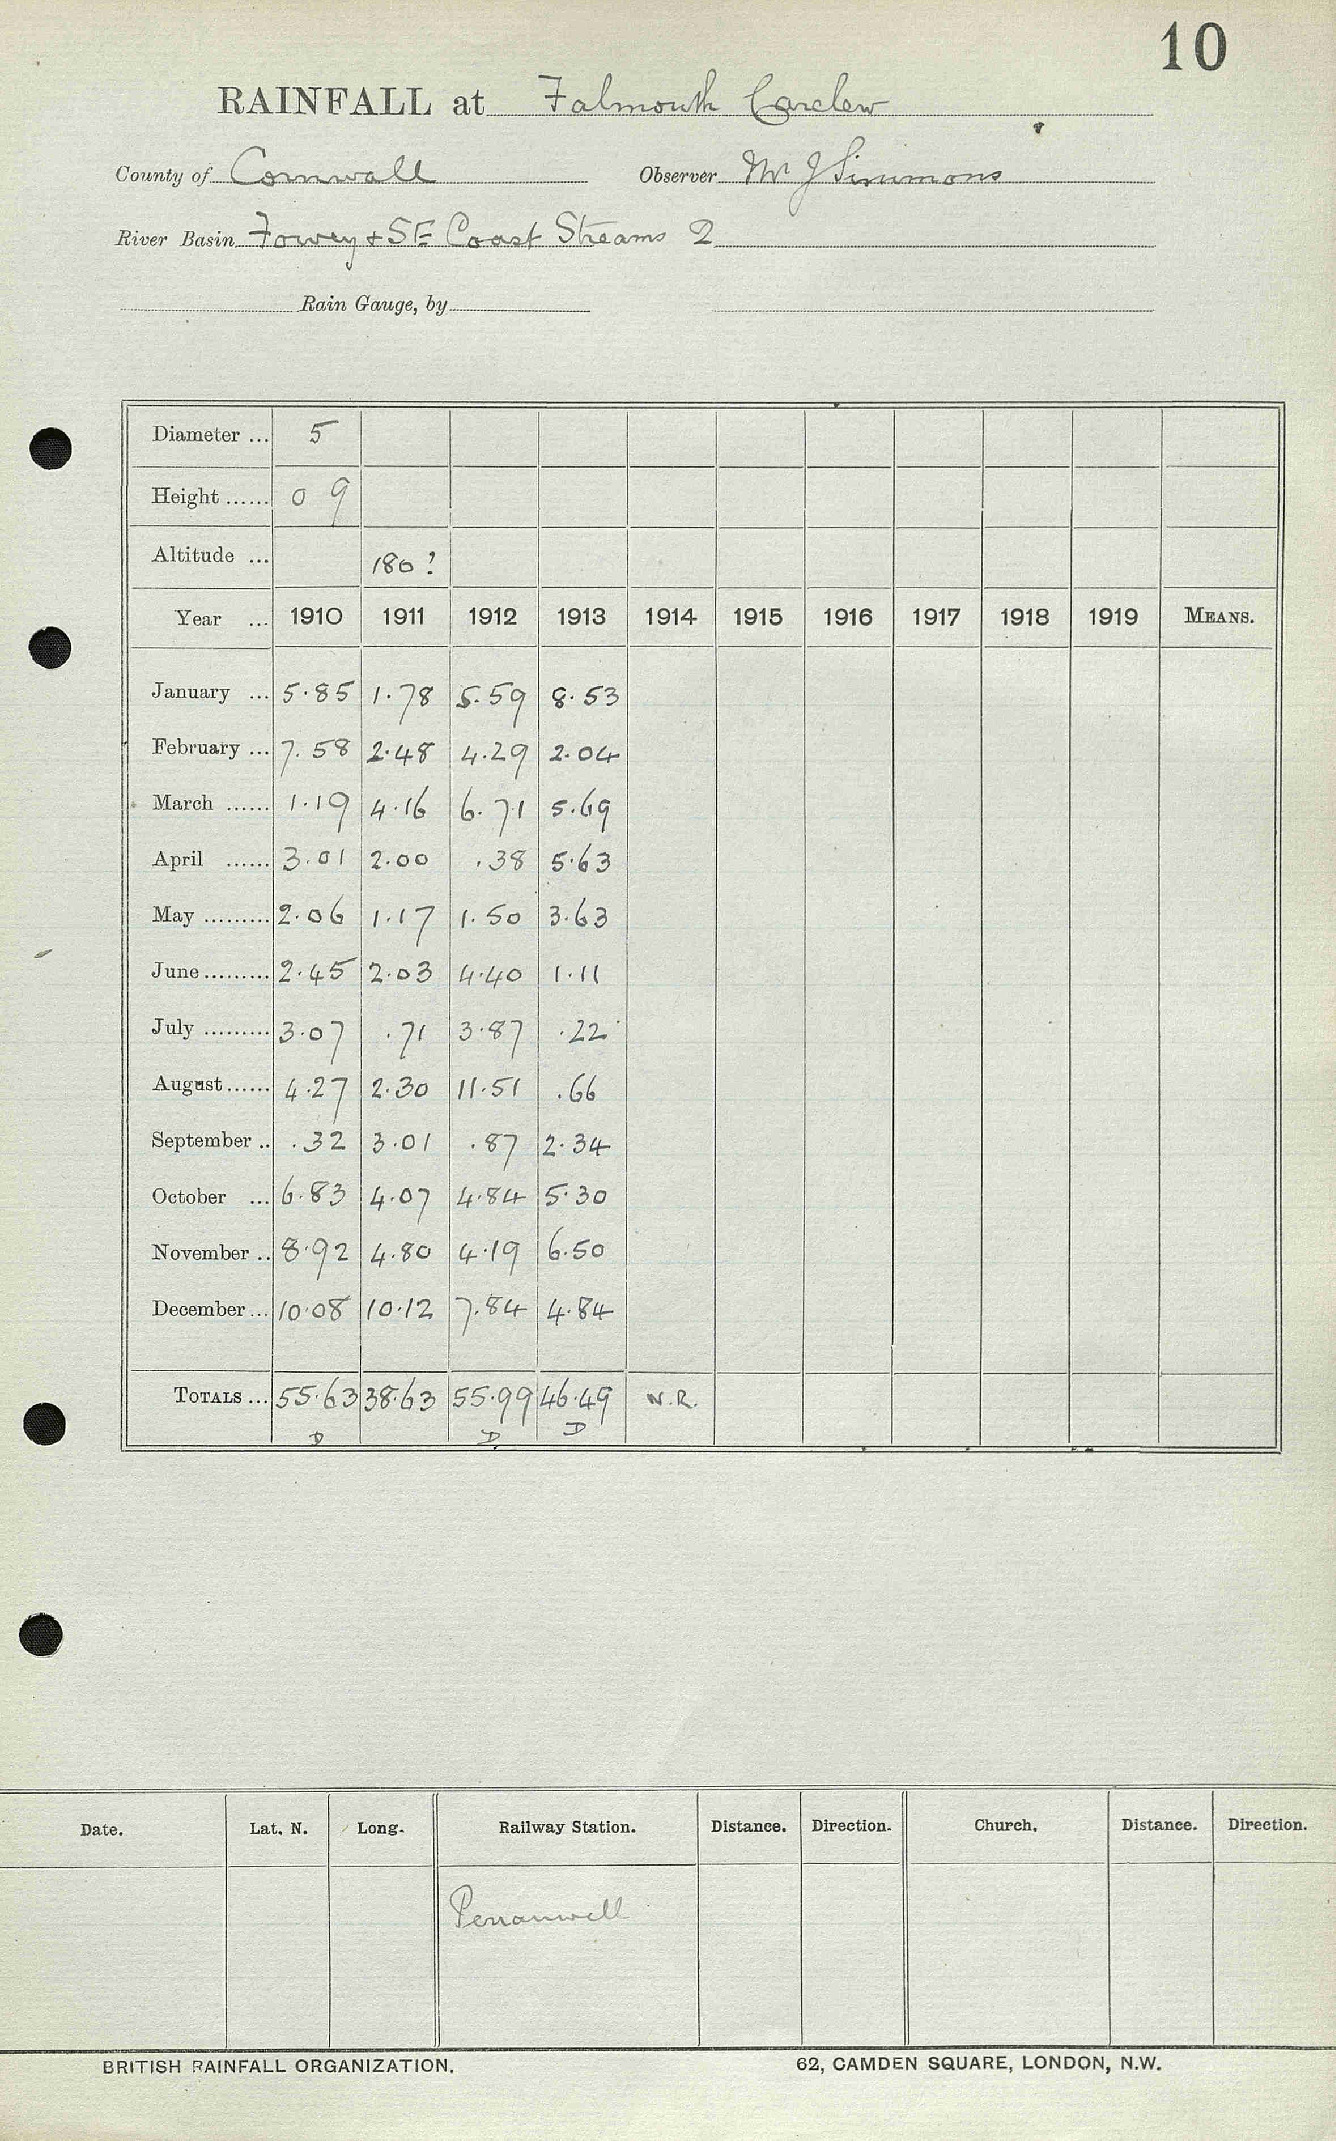 10
RAINFALL at Falmouth Carclew
County of Cornwall Observer Mr J Simmons
River Basin Fowey + SE Coast Streams 2
Rain Gauge, by
Diameter ... 5
Height ...... 0 9
Altitude ... 180?
Year ... 1910 1911 1912 1913 1914 1915 1916 1917 1918 1919 MEANS.
January ... 5.85 1.78 5.59 8.53
February ... 7.58 2.48 4.29 2.04
March ...... 1.19 4.16 6.71 5.69
April ...... 3.01 2.00 .38 5.63
May ......... 2.06 1.17 1.50 3.63
June ......... 2.45 2.03 4.40 1.11
July ......... 3.07 .71 3.87 .22
August ...... 4.27 2.30 11.51 .66
September .. .32 3.01 .87 2.34
October ... 6.83 4.07 4.84 5.30
November .. 8.92 4.80 4.19 6.50
December ... 10.08 10.12 7.84 4.84
TOTALS ... 55.63 38.63 55.99 46.49 N.R.
D D D
Date. Lat. N. Long. Railway Station. Distance. Direction. Church. Distance. Direction.
Perranwell
BRITISH RAINFALL ORGANIZATION. 62, CAMDEN SQUARE, LONDON, N.W.